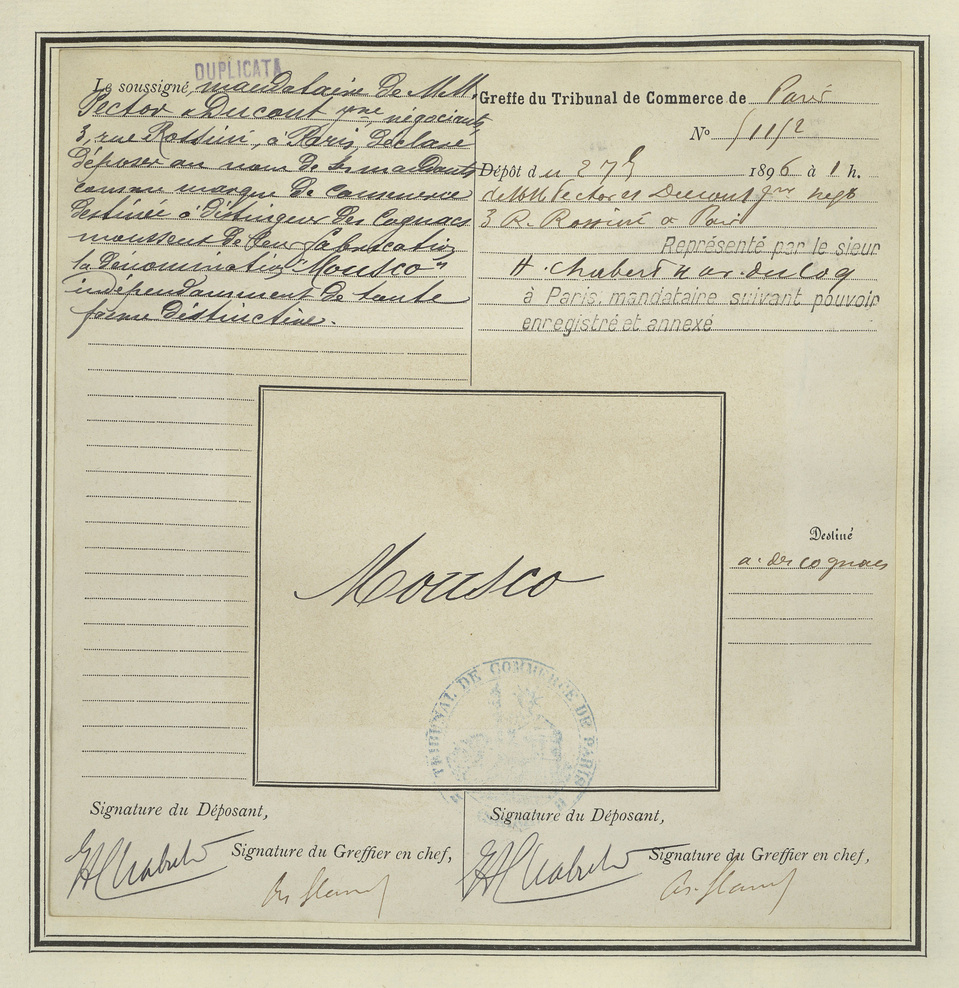 DUPLICATA
Le soussigné, mandataire de M.M.
Pector & Ducout jne, négociants,
3, rue Rossini, à Paris, déclare
déposer au nom de ses mandants
comme marque de commerce
destinée à distinguer des Cognacs
mousseux de leur fabrication
la dénomination "Mousco"
indépendamment de toute
forme distinctive.
Greffe du Tribunal de Commerce de Paris
No
Dépôt du 27 1896 à 1 h.
de MM Pector et Ducout jne
3 R. Rossini à Paris
Représenté par le sieur
H. Chabert
à Paris, mandataire suivant pouvoir
enregistré et annexé
Mousco
Destiné
à des cognacs
TRIBUNAL DE COMMERCE DE PARIS
Signature du Déposant,
Signature du Déposant,
Signature du Greffier en chef,
Signature du Greffier en chef,